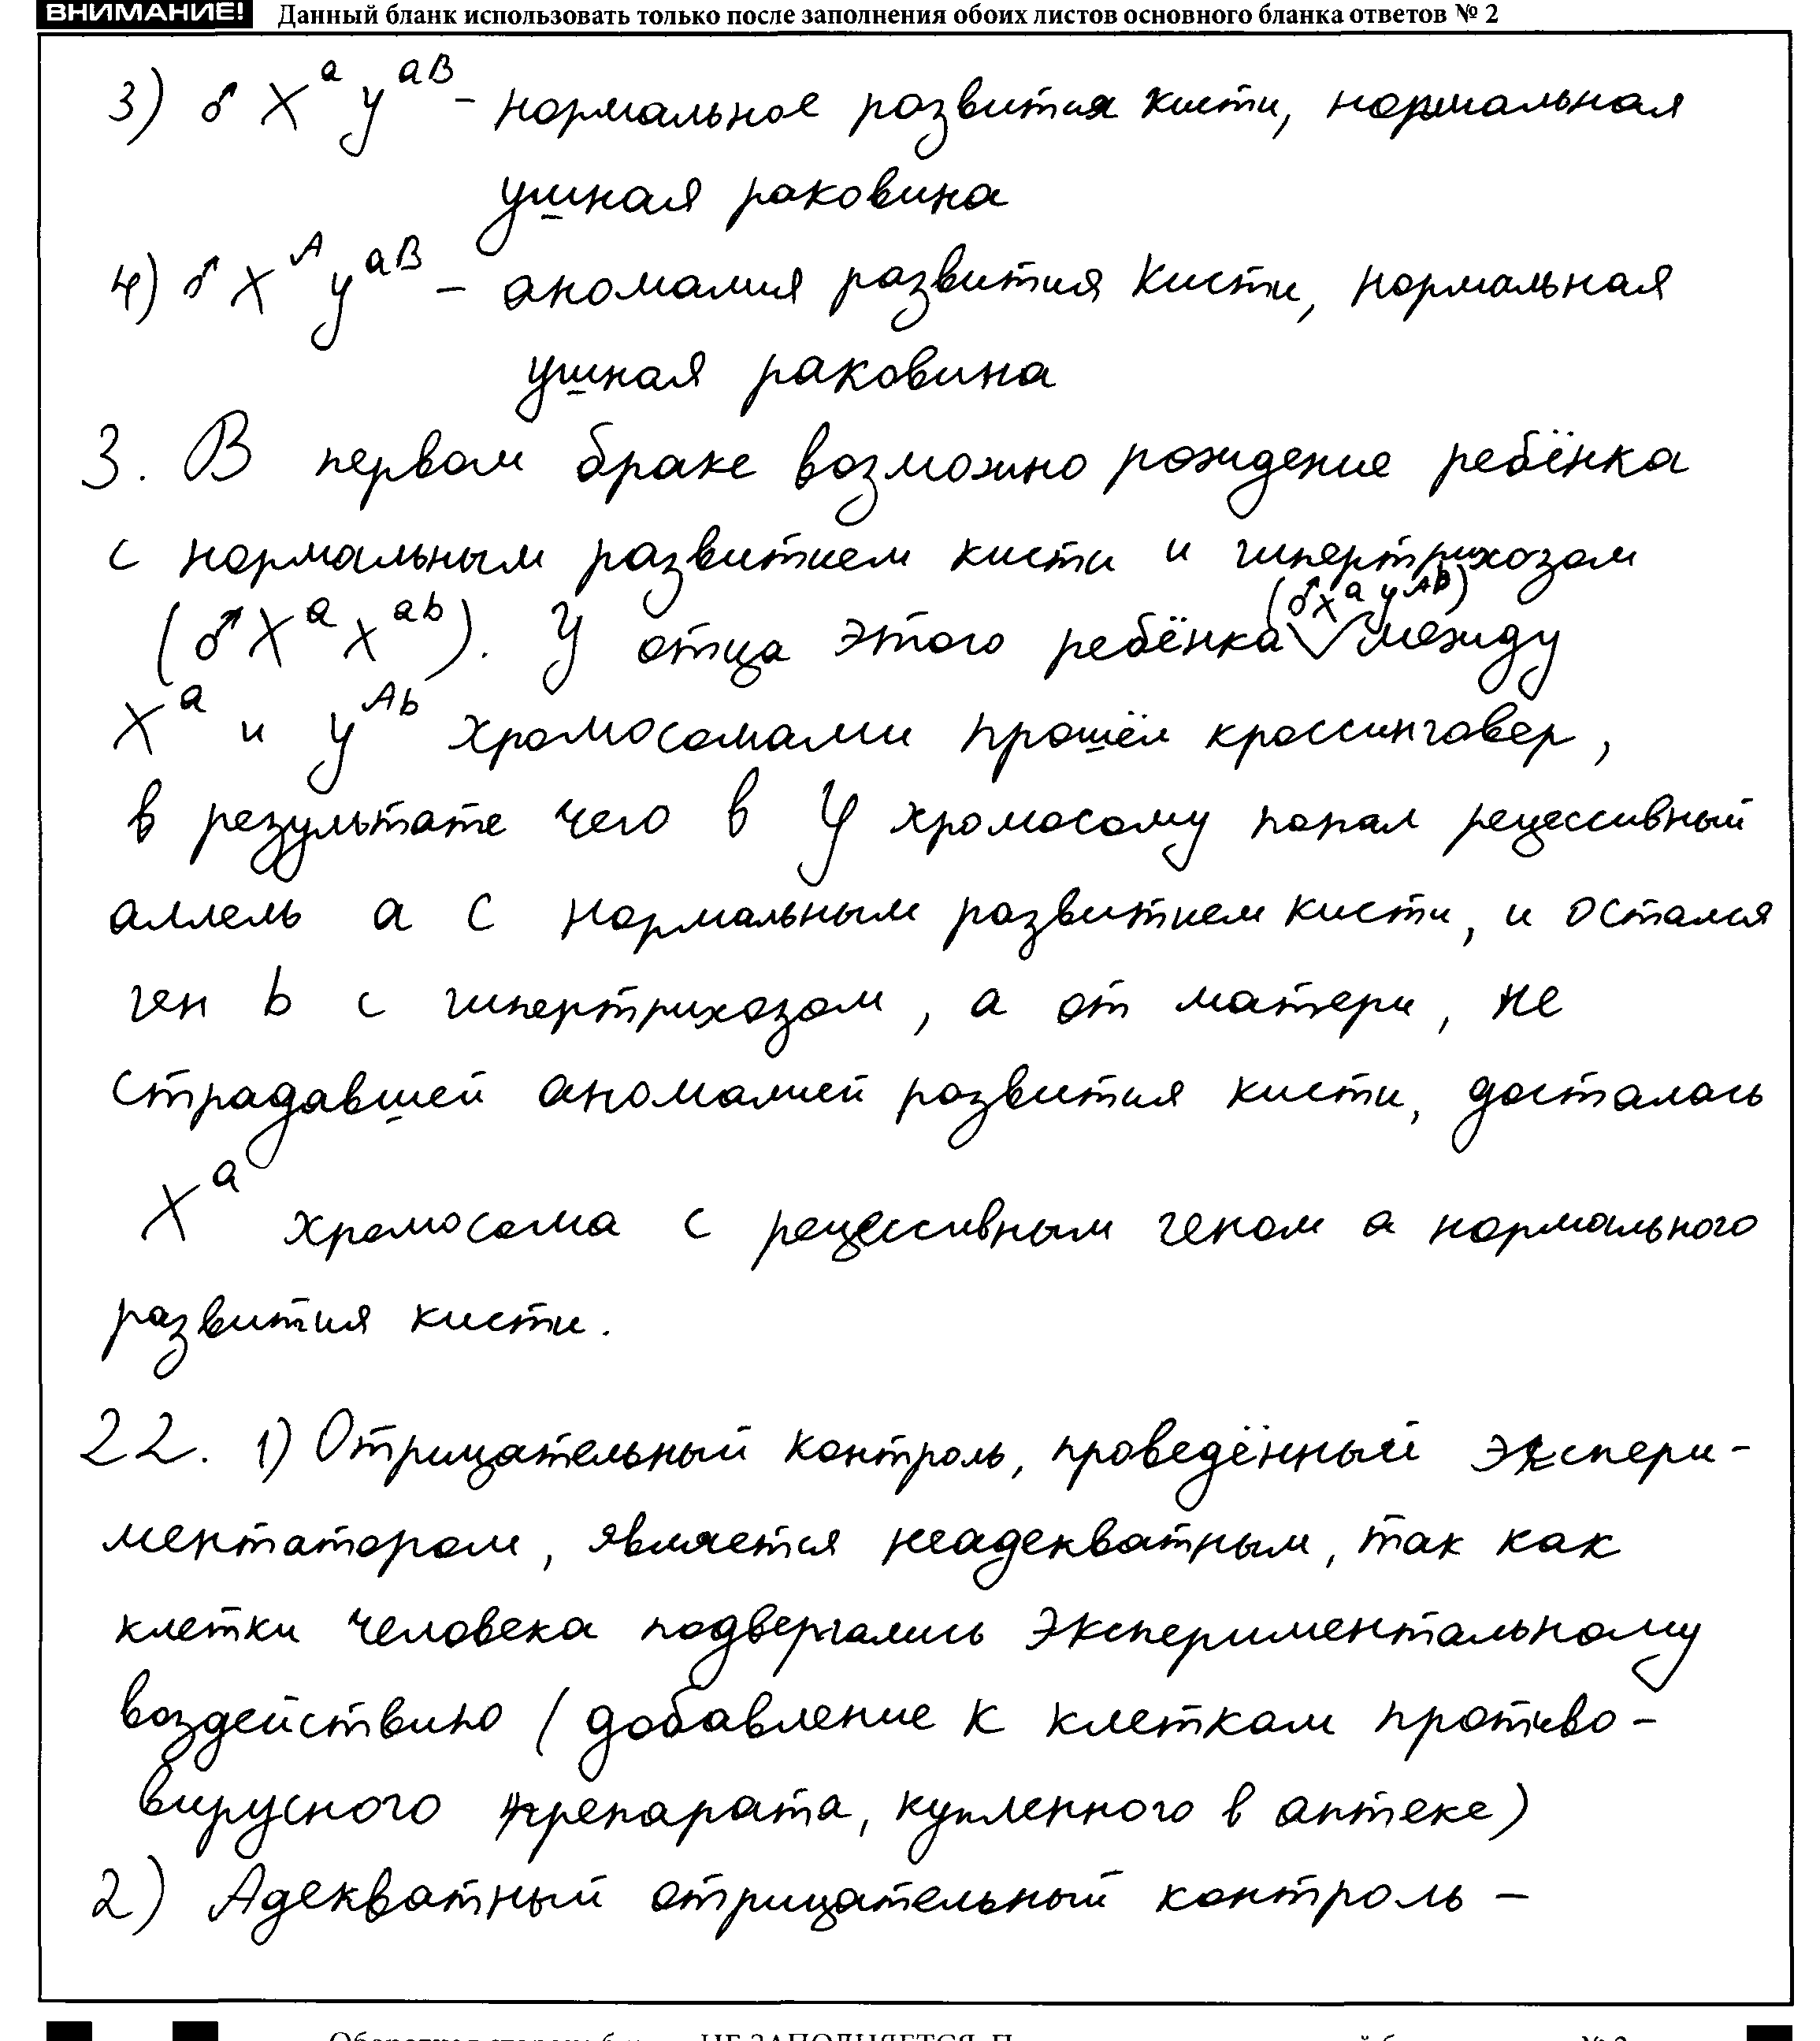 ВНИМАНИЕ! Данный бланк использовать только после заполнения обоих листов основного бланка ответов № 2
3) ♂ X^a y^aB - нормальное развития кисти, нормальная
ушная раковина
4) ♂ X^A y^aB - аномалия развития кисти, нормальная
ушная раковина
3. В первом браке возможно рождение ребёнка
с нормальным развитием кисти и гипертрихозом
(♂ X^a x^ab). У отца этого ребёнка (♂ X^a y^Ab) между
X^a и y^Ab хромосомами прошёл кроссинговер,
в результате чего в Y хромосому попал рецессивный
аллель a с нормальным развитием кисти, и остался
ген b с гипертрихозом, а от матери, не
страдавшей аномалией развития кисти, досталась
X^a хромосома с рецессивным геном a нормального
развития кисти.
22. 1) Отрицательный контроль, проведённый экспери-
ментатором, является неадекватным, так как
клетки человека подвергались экспериментальному
воздействию (добавление к клеткам противо-
вирусного препарата, купленного в аптеке)
2) Адекватный отрицательный контроль -